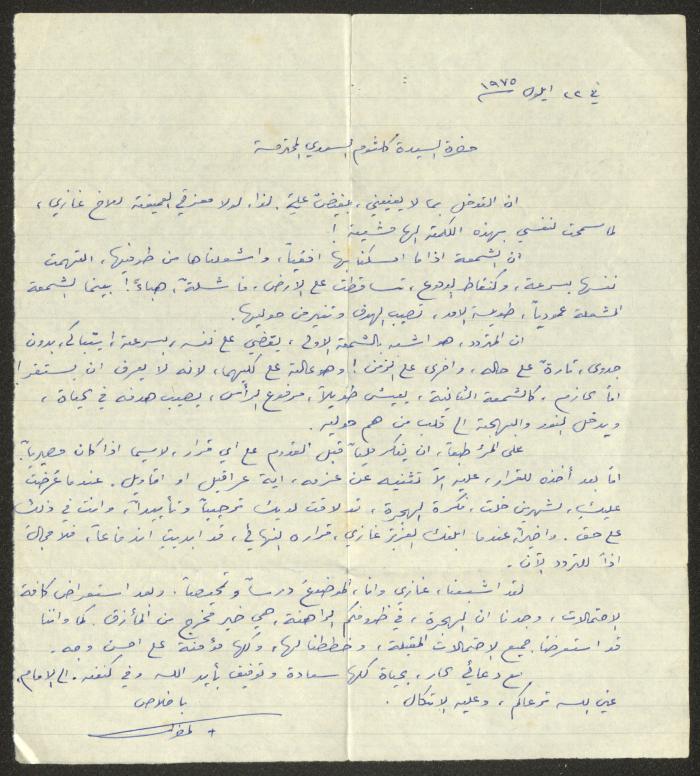 في ٢٢ ايلول ١٩٧٥
حضرة السيدة كلثوم السعدي المحترمة
ان التدخل بما لا يعنيني، بغيض عليّ. لذا، لولا معزتي العميقة للاخ غازي،
لما سمحت لنفسي بهذه الكلمة
ان الشمعة اذا ما امسكنا بها افقياً، واشعلناها من طرفيها، التهمت
نفسها بسرعة، وكنقاط الدموع، تساقطت على الارض، فاشلة، هباءً! بينما الشمعة
المشعلة عمودياً، طويلة الامد، تصيب الهدف وتنير من حوليها.
ان المتردد، هو اشبه بالشمعة الاولى، يقضي على نفسه، بسرعة، يتباكى، بدون
جدوى، تارة على حاله، واخرى على الزمن! وهو عالة على كليهما، لانه لا يعرف ان يستقر!
اما الحازم، كالشمعة الثانية، يعيش طويلاً، مرفوع الرأس، يصيب هدفه في الحياة،
ويدخل النور والبهجة الى قلب من هم حوليه.
على المرء طبعاً، ان يفكر ملياً قبل القدوم على اي قرار، لاسيما اذا كان مصيرياً.
اما بعد أخذه للقرار، عليه الاّ تثنيه عن عزمه، اية عراقيل او اقاويل. عندما عُرضت
عليكِ، لشهرين خلت، فكرة الهجرة، قد لاقت لديك ترحيباً وتأييداً، وانت في ذلك
على حق. واخيراً عندما ابلغك العزيز غازي، قراره النهائي، قد ابديتِ اندفاعاً، فلا مجال
اذاً للتردد الآن.
لقد اشبعنا، غازي وانا، الموضوع درساً وتمحيصاً. وبعد استعراض كافة
الاحتمالات، وجدنا ان الهجرة، في ظروفكم الراهنة، هي خير مخرج من المأزق. كما واننا
قد استعرضنا جميع الاحتمالات المقبلة، وخططنا لها، وكلها مؤمنة على احسن وجه.
مع دعائي الحار، بحياة كلها سعادة وتوفيق بتأييد الله وفي كنفه. الى الامام،
عين الله ترعاكم، وعليه الاتكال.
باخلاص